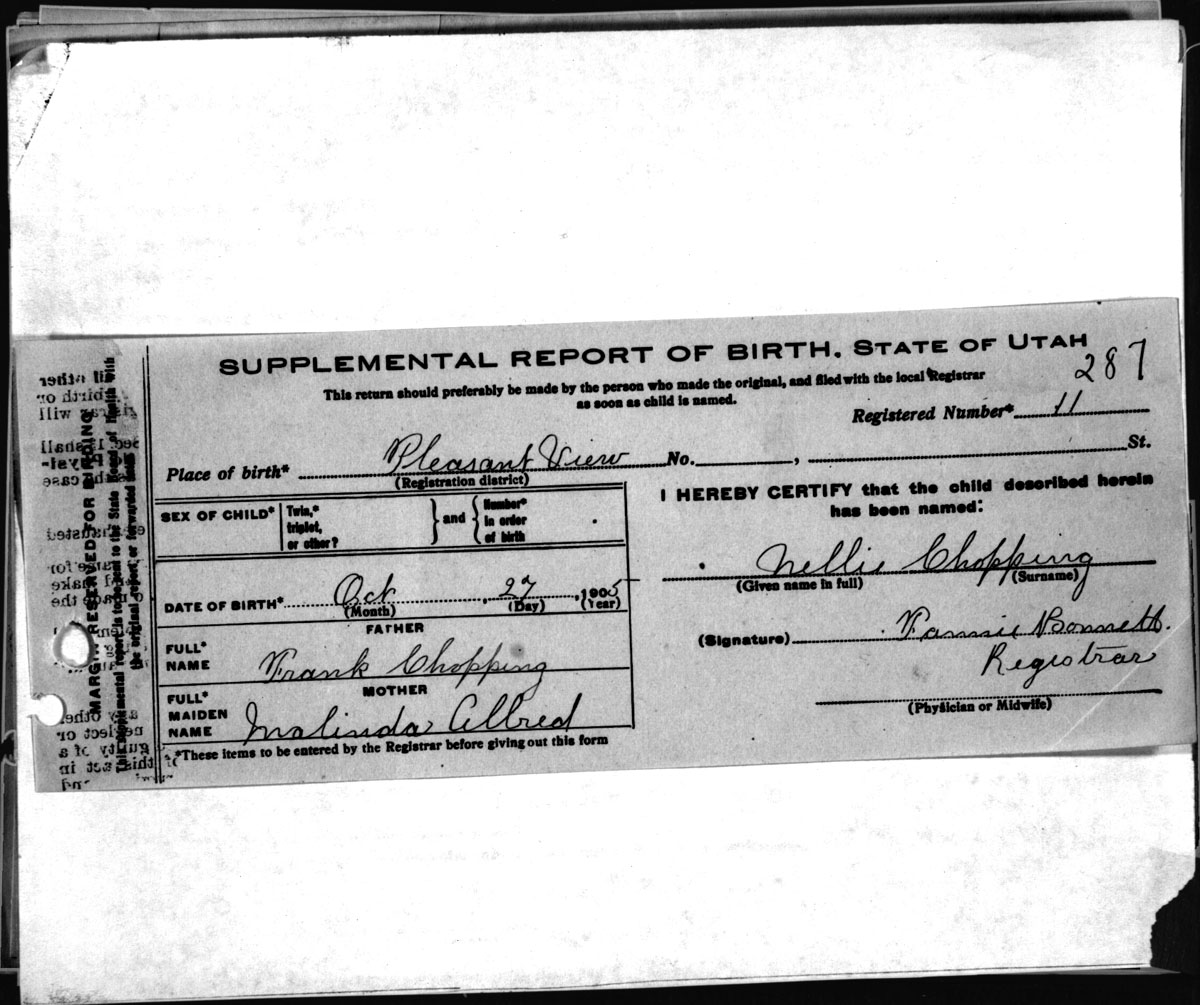 SUPPLEMENTAL REPORT OF BIRTH. STATE OF UTAH
287
This return should preferably be made by the person who made the original, and filed with the local Registrar
as soon as child is named.
Registered Number* 11
Place of birth* Pleasant View No. , St.
(Registration district)
SEX OF CHILD* Twin,* triplet, or other? } and { Number* in order of birth
I HEREBY CERTIFY that the child described herein
has been named:
Nellie Chopping
(Given name in full) (Surname)
DATE OF BIRTH* Oct , 27 , 1905
(Month) (Day) (Year)
FATHER
FULL* NAME Frank Chopping
(Signature) Fannie Bonnett.
Registrar
(Physician or Midwife)
MOTHER
FULL* MAIDEN NAME Malinda Allred
*These items to be entered by the Registrar before giving out this form
MARGIN RESERVED FOR BINDING
This supplemental report is to be sent to the State Board of Health with
the original report, or forwarded